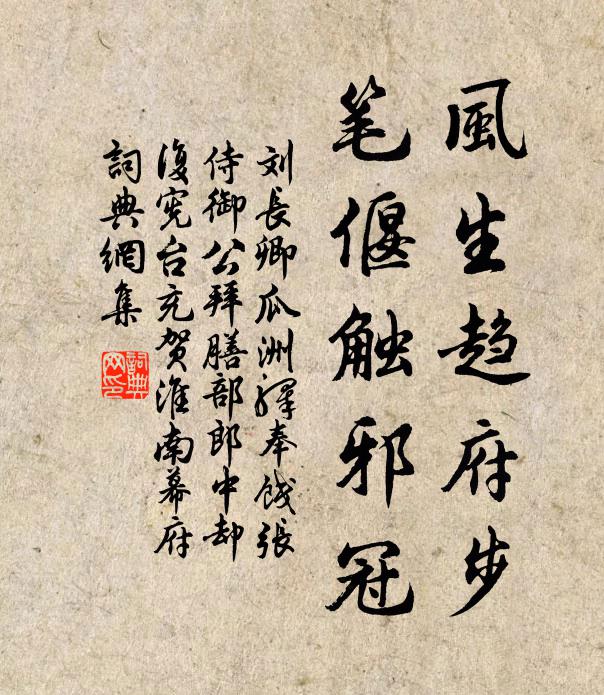 風生趋府步
笔偃触邪冠
刘長卿瓜洲驛奉餞張
侍御公拜膳部郎中却
復宪台充贺淮南幕府
詞典網集
詞典网印